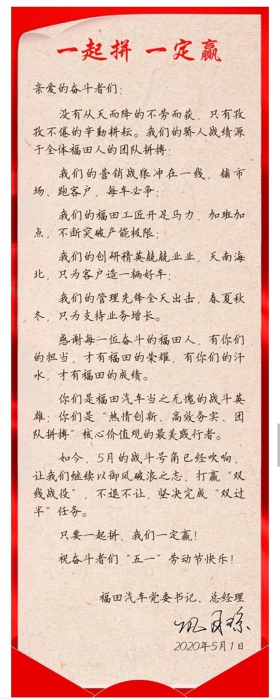 一起拼 一定赢
亲爱的奋斗者们：
没有从天而降的不劳而获，只有孜
孜不倦的辛勤耕耘。我们的骄人战绩源
于全体福田人的团队拼搏：
我们的营销战狼冲在一线，铺市
场、跑客户，每车必争；
我们的福田工匠开足马力，加班加
点，不断突破产能极限；
我们的创研精英兢兢业业，天南海
北，只为客户造一辆好车；
我们的管理先锋全天出击，春夏秋
冬，只为支持业务增长。
感谢每一位奋斗的福田人，有你们
的担当，才有福田的荣耀，有你们的汗
水，才有福田的成绩。
你们是福田汽车当之无愧的战斗英
雄；你们是“热情创新、高效务实、团
队拼搏”核心价值观的最美践行者。
如今，5月的战斗号角已经吹响，
让我们继续以御风破浪之志，打赢“双
线战役”，不退不让，坚决完成“双过
半”任务。
只要一起拼，我们一定赢！
祝奋斗者们“五一”劳动节快乐！
福田汽车党委书记、总经理
2020年5月1日